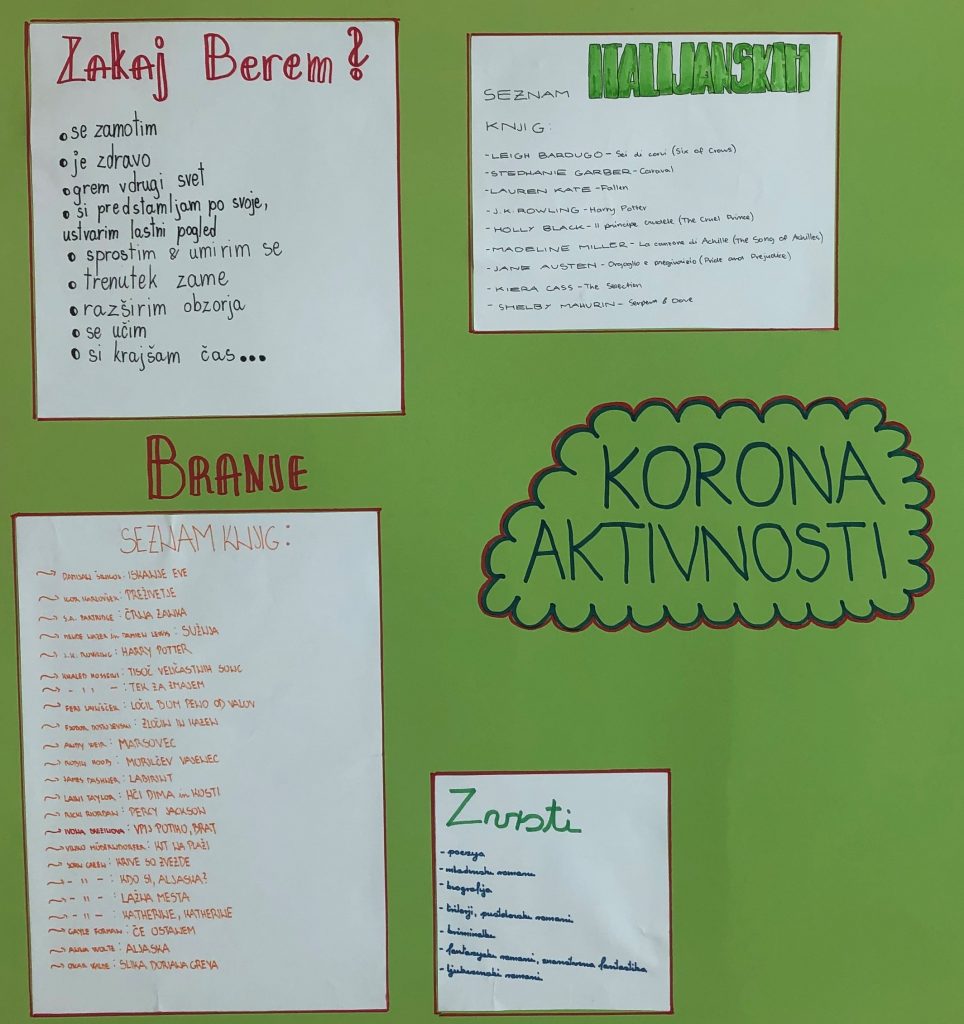 Zakaj Berem?
•se zamotim
•je zdravo
•grem v drugi svet
•si predstamljam po svoje,
ustvarim lastni pogled
• sprostim & umirim se
•trenutek zame
•razširim obzorja
•se učim
•si krajšam čas...
SEZNAM ITALIJANSKIH
KNJIG:
-LEIGH BARDUGO- Sei di corvi (Six of Crows)
-STEPHANIE GARBER-Caraval
-LAUREN KATE-Fallen
-J.K.ROWLING-Harry Potter
-HOLLY BLACK-Il principe crudele (The Cruel Prince)
-MADELINE MILLER-La canzone di Achille (The Song of Achilles)
-JANE AUSTEN-Orgoglio e (Pride and Prejudice)
-KIERA CASS-The Selection
-SHELBY MAHURIN-Serpent & Dove
BRANJE
SEZNAM KNJIG:
ISKANJE EVE
PREŽIVETJE
S.A. PARTRIDGE: ČRNA ZANKA
in DAMIEN LEWIS: SUŽNJA
J.K. ROWLING: HARRY POTTER
KHALED HOSSEINI: TISOČ VELIČASTNIH SONC
- " -: TEK ZA ZMAJEM
FERI LAINŠČEK: LOČIL BOM PENO OD VALOV
ZLOČIN IN KAZEN
ANDY WEIR: MARSOVEC
ROBIN HOBB: MORILČEV VAJENEC
JAMES DASHNER: LABIRINT
LAINI TAYLOR: HČI DIMA in KOSTI
RICK RIORDAN: PERCY JACKSON
IVONA BREZINOVA: VPIJ POTIHO, BRAT
VINKO MÖDERNDORFER: KIT NA PLAŽI
JOHN GREEN: KRIVE SO ZVEZDE
- " -: KDO SI, ALJASKA?
- " -: LAŽNA MESTA
- " -: KATHERINE, KATHERINE
GAYLE FORMAN: ČE OSTANEM
ANNA WOLTZ: ALJASKA
OSKAR WILDE: SLIKA DORIANA GREYA
KORONA
AKTIVNOSTI
Zvrsti
- poezija
- mladinski romani
- biografija
- trilerji, pustolovski romani
- kriminalke
- fantazijski romani, znanstvena fantastika
- ljubezenski romani